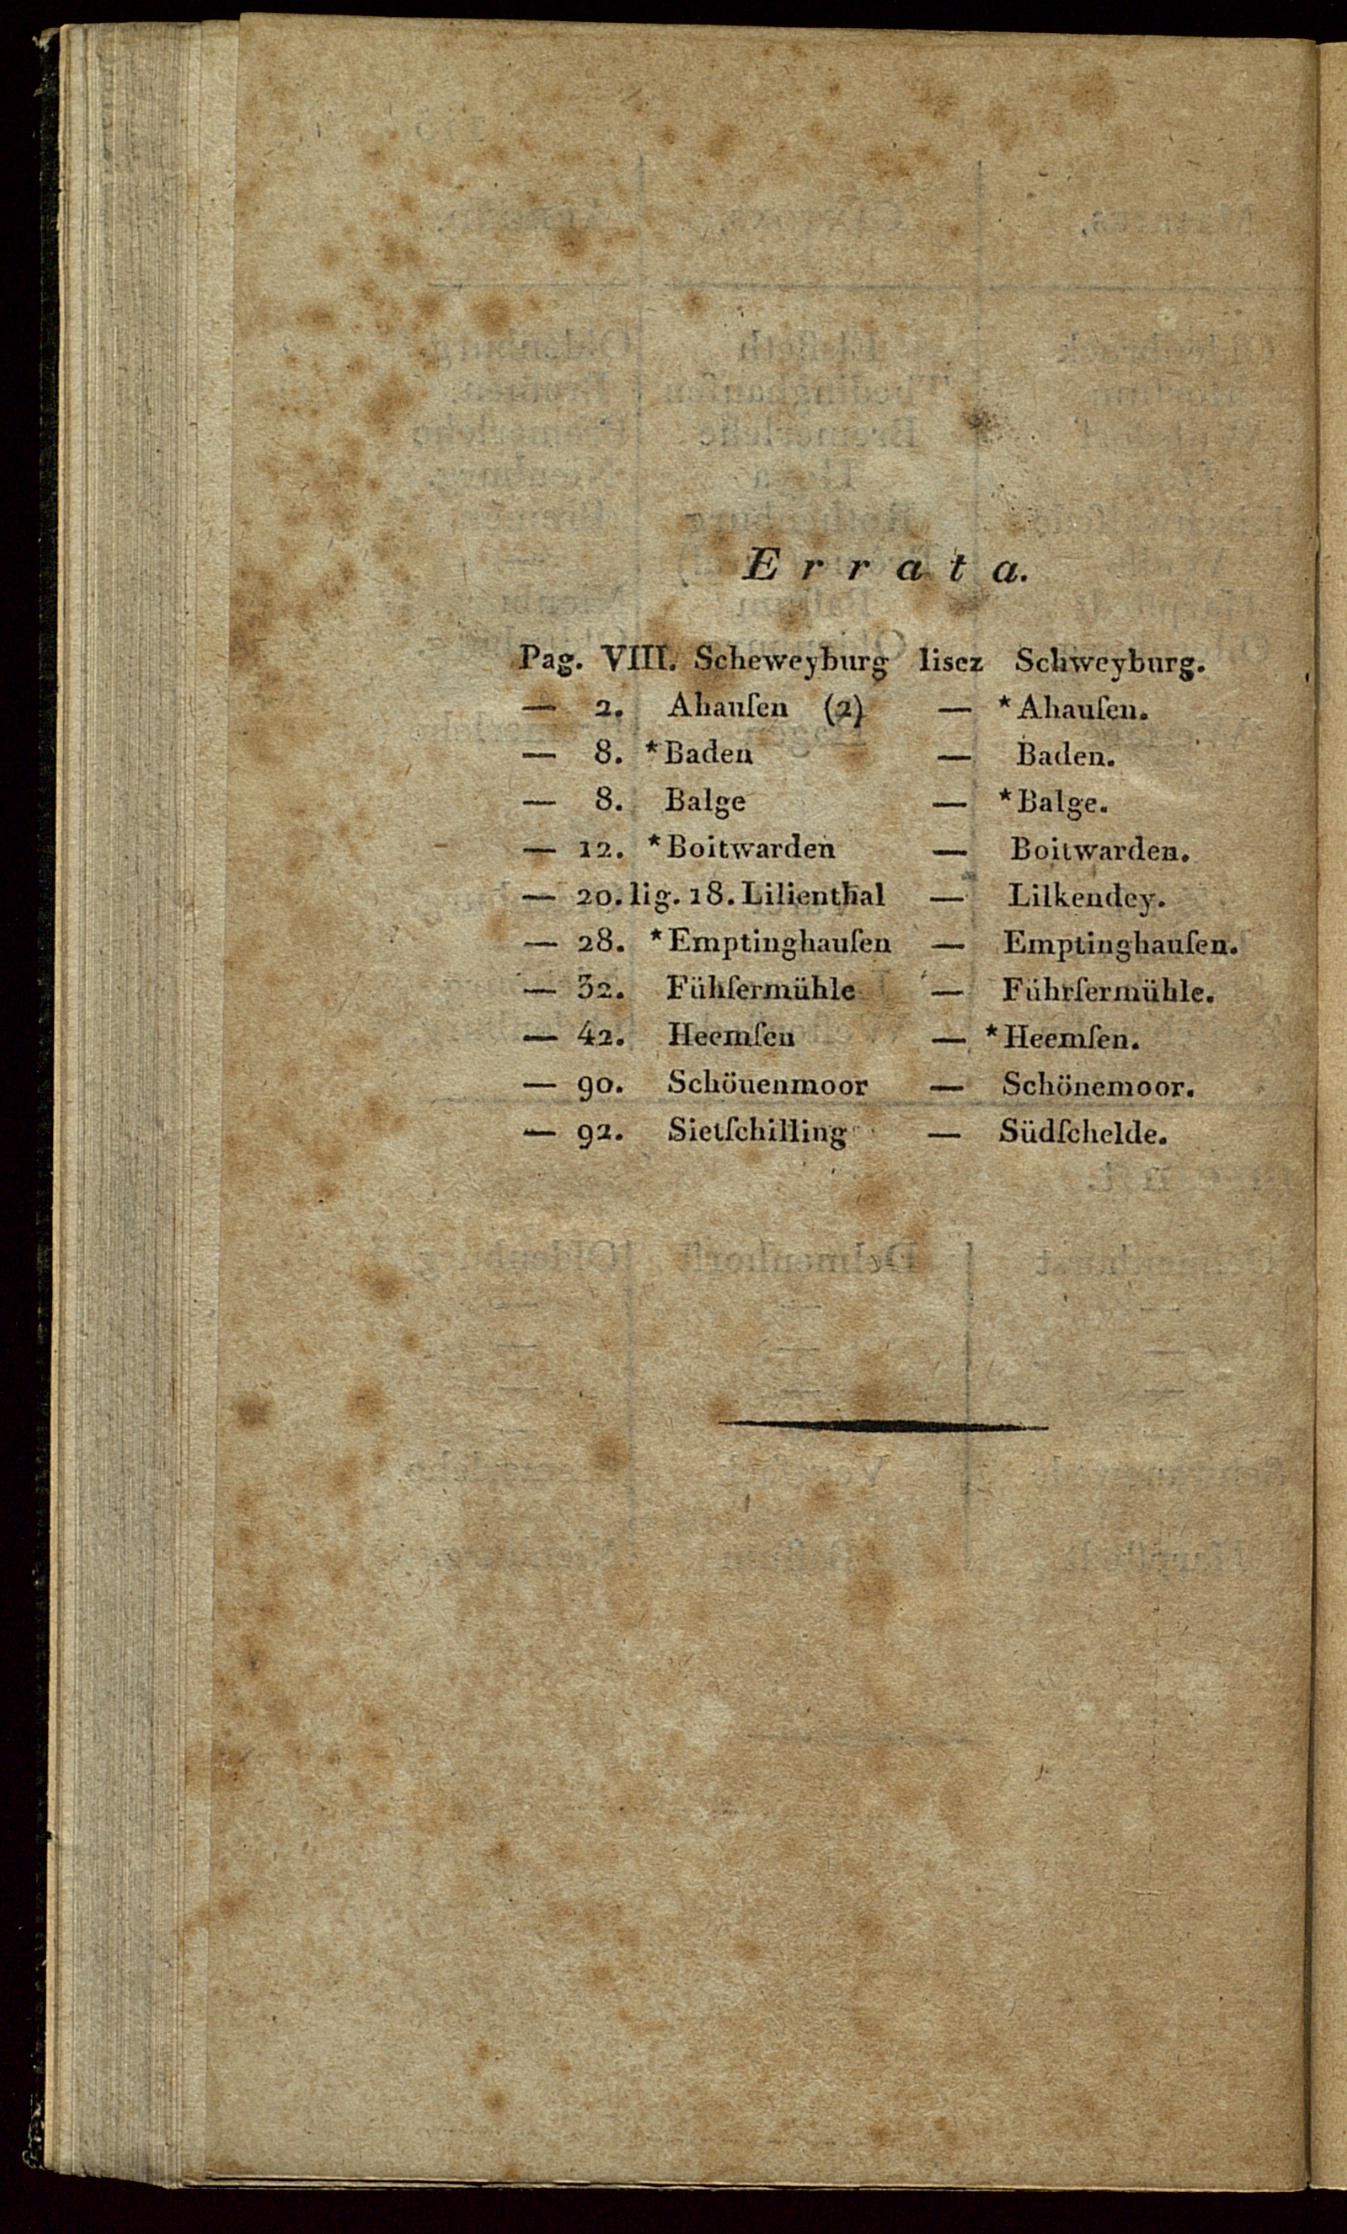 Errata.
Pag. VIII. Scheweyburg lisez Schweyburg.
— 2. Ahauſen (2) — *Ahauſen.
— 8. *Baden — Baden.
— 8. Balge — *Balge.
— 12. *Boitwarden — Boitwarden.
— 20. lig. 18. Lilienthal — Lilkendey.
— 28. *Emptinghauſen — Emptinghauſen.
— 32. Fühſermühle — Führſermühle.
— 42. Heemſen — *Heemſen.
— 90. Schöuenmoor — Schönemoor.
— 92. Sietſchilling — Südſchelde.